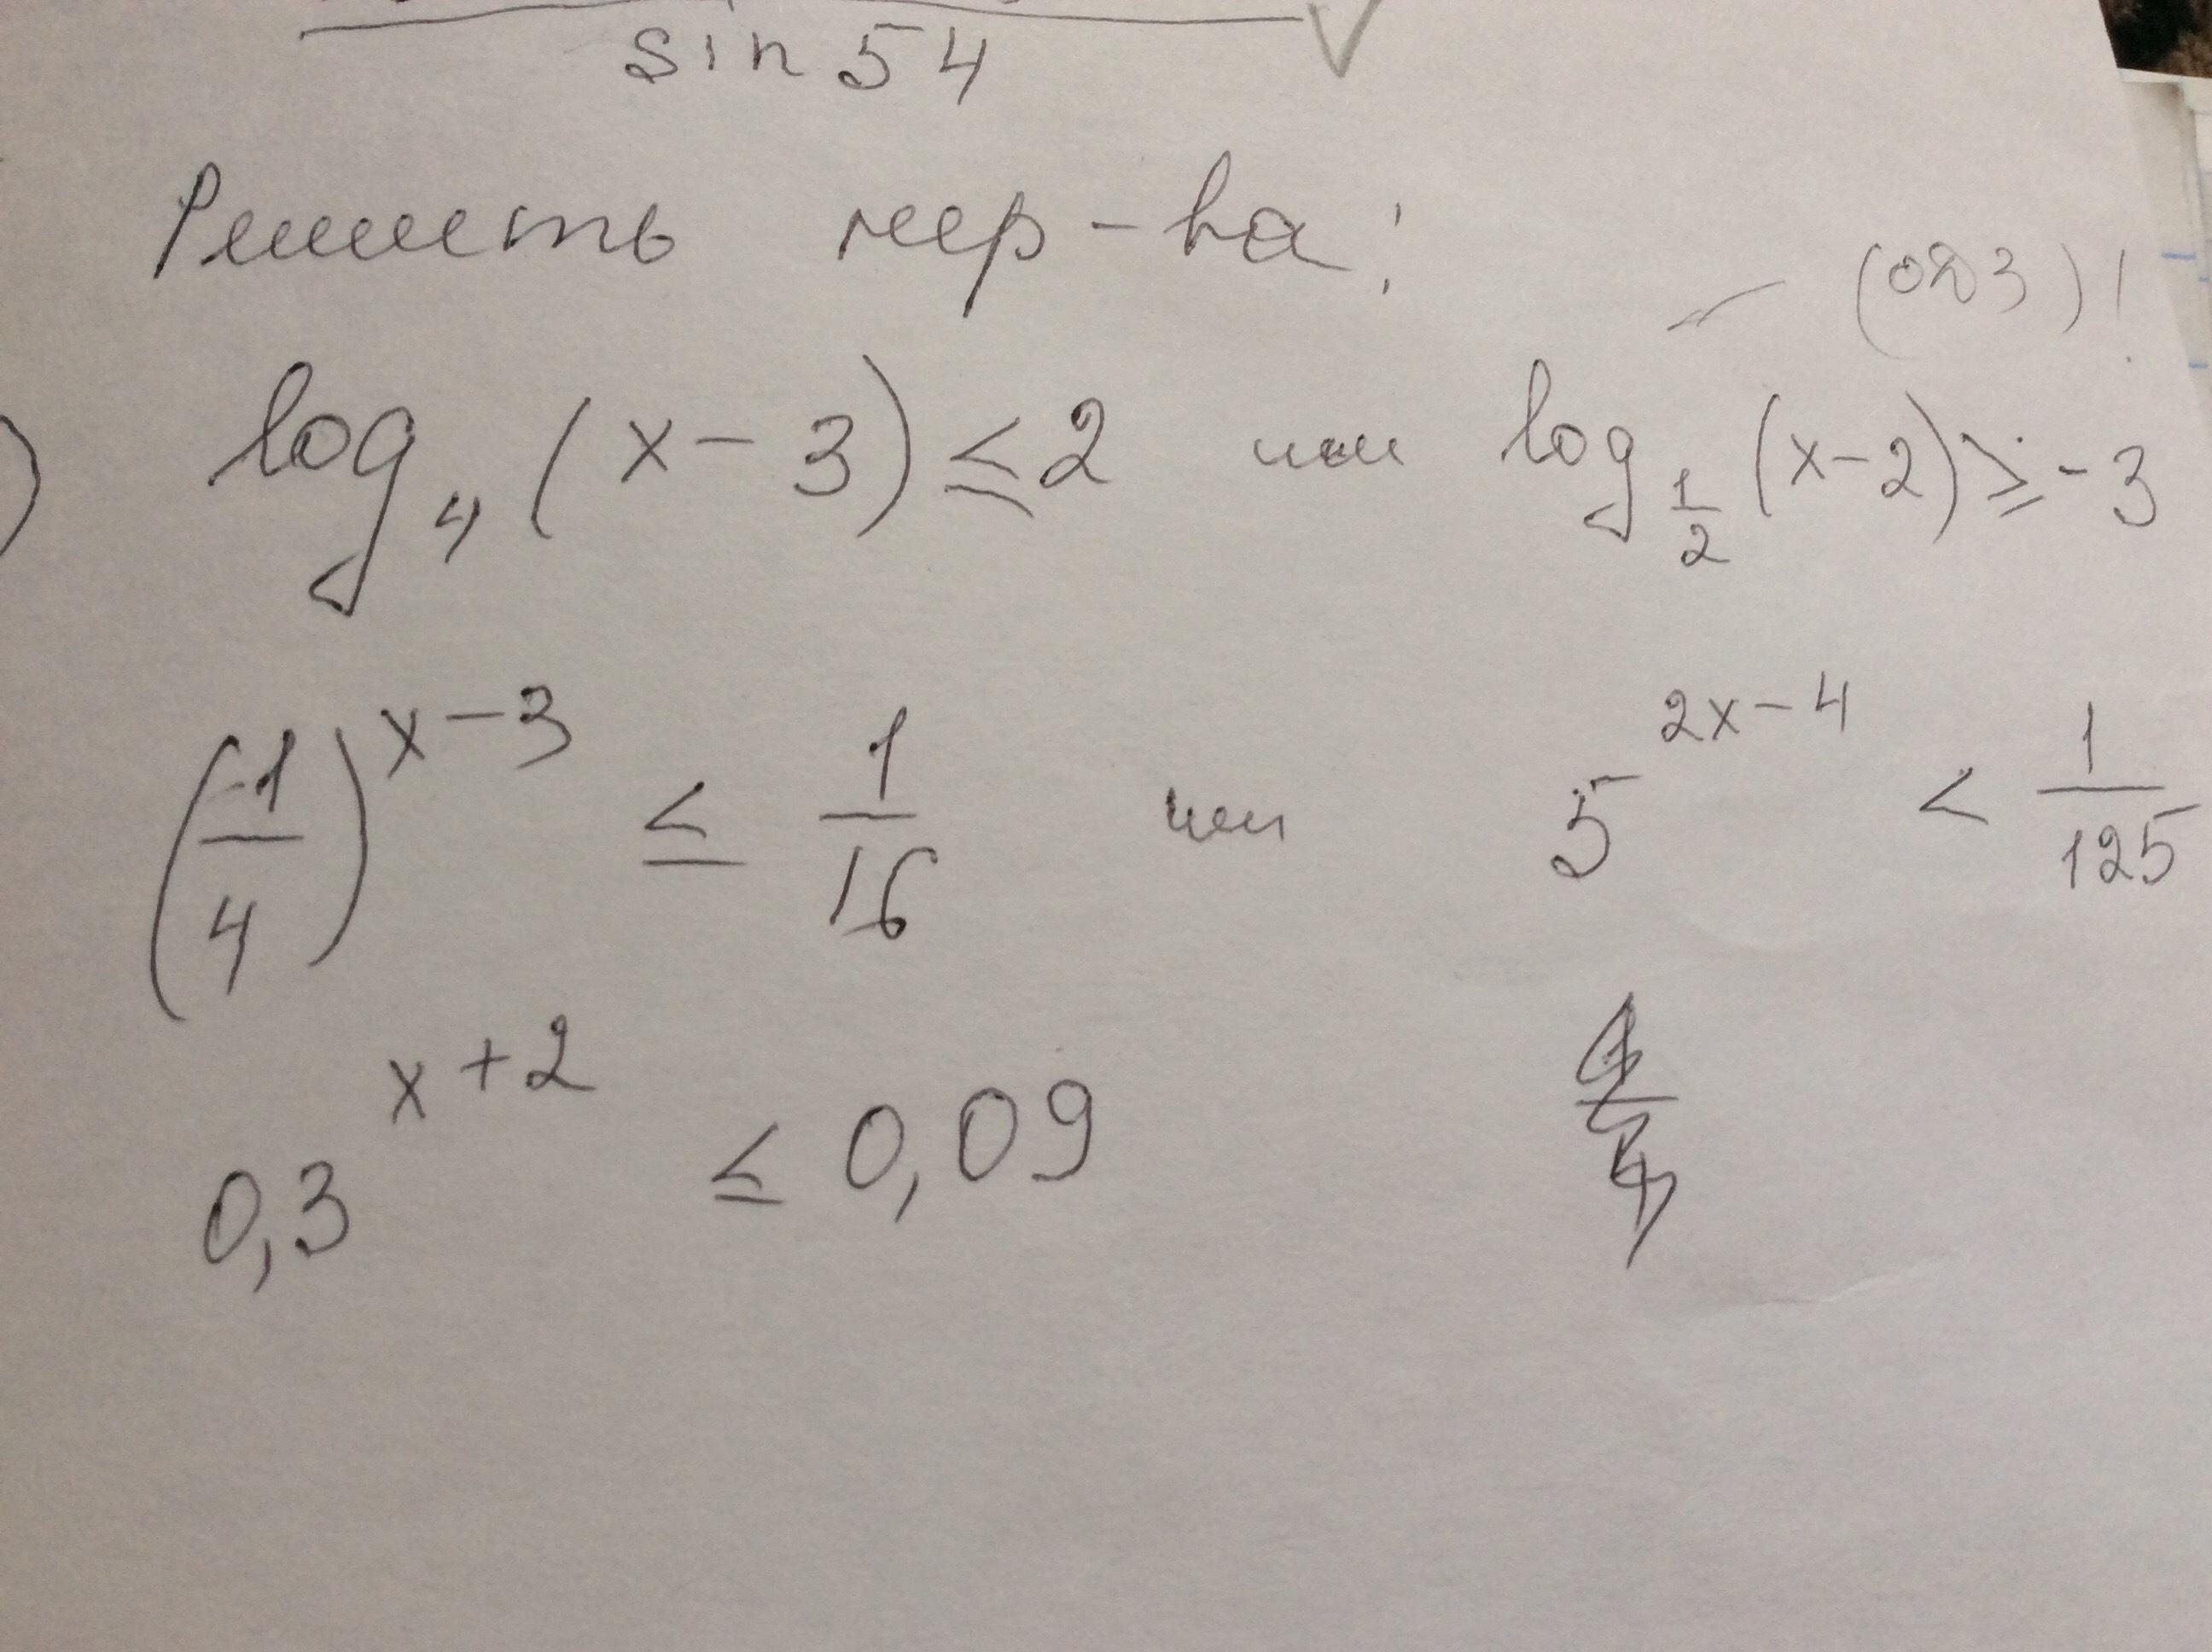 sin 54
Решить нер-ва:
(ОДЗ)!
) log₄ (x - 3) ≤ 2 или log_{1/2} (x - 2) ≥ -3
(1/4)^{x-3} ≤ 1/16 или 5^{2x-4} < 1/125
0,3^{x+2} ≤ 0,09